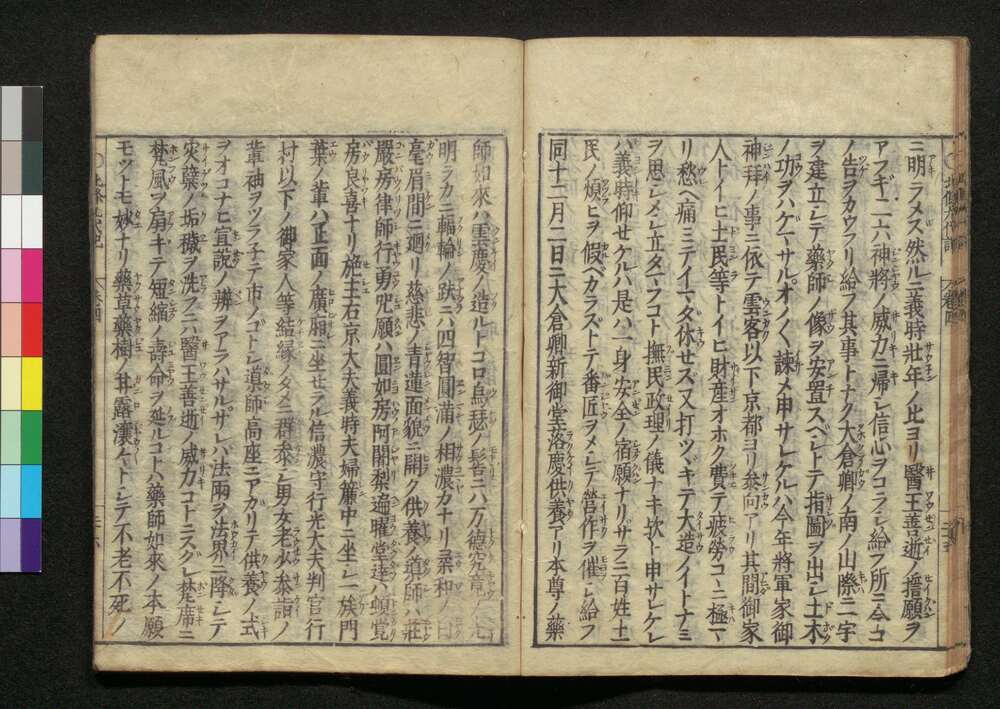 ニ明ラメズ然ルニ義時壯年ノ比ヨリ醫王善逝ノ擔願ヲ
アフギ二六神將ノ威力ニ歸シ信心ヲコラシ給フ所ニ今コ
ノ告ヲカウフリ給フ其事トナク大倉卿ノ南ノ山際ニ一宇
ヲ建立シテ藥師ノ像ヲ安置スベシトテ指圖ヲ出シ土木
ノ功ヲハゲマサルオノ〱諫メ申サレケルハ今年將軍家御
神拜ノ事ニ依テ雲客以下京都ヨリ參向アリ其間御家
人トイヒ土民等トイヒ財産オホク費テ疲勞コヽニ極マ
リ愁ヘ痛ミテイマタ休セズ又打ツヾキテ大造ノイトナミ
ヲ思シメシ立タマフコト撫民政理ノ儀ナキ欤ト申サレケレ
バ義時仰セケルハ是ハ一身安全ノ宿願ナリサラニ百姓土
民ノ煩ヒヲ假ベカラズトテ番匠ヲメシテ營作ヲ催シ給フ
同十二月二日ニ大倉卿新御堂落慶供養アリ本尊ノ藥
師如來ハ雲慶ノ造ルトコロ烏瑟ノ髻ニハ万德究竟ノ
明ラカニ輻輪ノ趺ニハ四智圓滿ノ相濃カナリ柔和ノ
毫眉間ニ廻リ慈悲ノ青蓮面貌ニ開ク供養ノ導師ハ莊
嚴房律師行勇咒願ハ圓如房阿闍梨遍曜堂達ハ頓覺
房良喜ナリ施主右京大夫義時夫婦簾中ニ坐シ一族門
葉ノ輩ハ正面ノ廣廂ニ坐セラル信濃守行光大夫判官行
村以下ノ御家人等結縁ノタメニ群參シ男女老少參詣ノ
輩袖ヲツラ子テ市ノコトシ導師高座ニアカリテ供養ノ式
ヲオコナヒ宣説ノ辨ヲアラハサルサレハ法雨ヲ法界ニ降シテ
災蘖ノ垢穢ヲ洗フニハ醫王善逝ノ威力コトニスグレ梵席ニ
梵風ヲ扇キテ短縮ノ壽命ヲ延ルコトハ藥師如來ノ本願
モツトモ妙ナリ藥草藥樹ノ甘露灑ケトシテ不老不死ノ